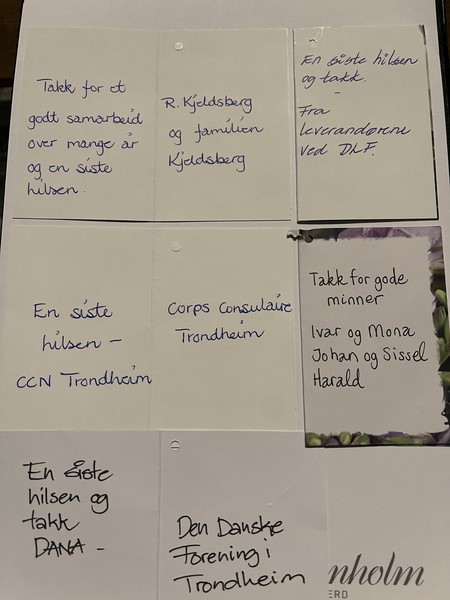 Takk for et
godt samarbeid
over mange år
og en siste
hilsen.
R. Kjeldsberg
og familien
Kjeldsberg
En siste hilsen
og takk.
–
Fra
leverandørene
ved DLF.
En siste
hilsen –
CCN Trondheim
Corps Consulaire
Trondheim
Takk for gode
minner
Ivar og Mona
Johan og Sissel
Harald
En siste
hilsen og
takk
DANA –
Den Danske
Forening i
Trondheim
nholm
ERD